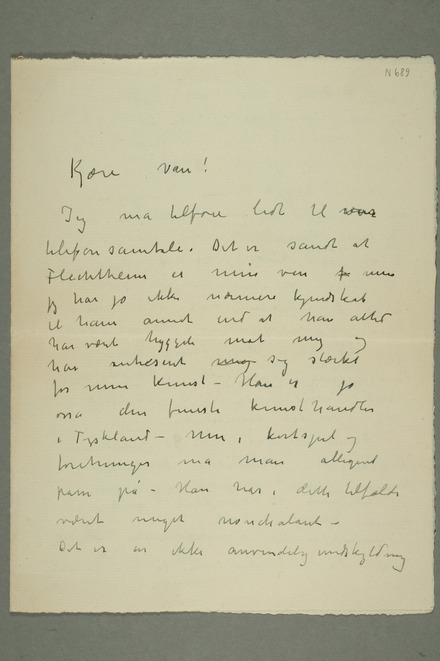 N 689
Kjære ven!
Jeg må tilføie lidt til vor
telefonsamtale. Det er sandt at
Flechtheim er min ven men
jeg har jo ikke nærmere kjendskab
til ham annet end at han altid
har vært hyggeli mot mig og
har interesert mig sig stærkt
for min kunst – Han er jo
osså den fineste kunsthandler
i Tyskland – Men i kortspil og
foretninger må man alligevel
passe på – Han har i dette tilfælde
været meget nonchalant –
Det er en ikke anvendelig undskyldning